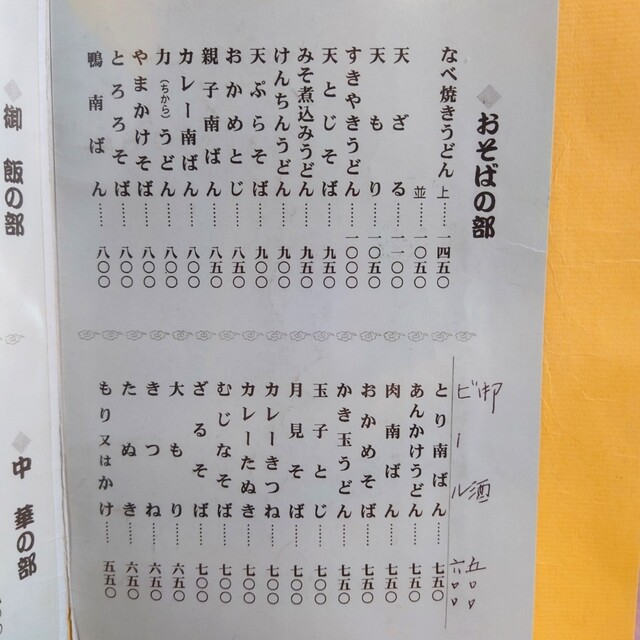 おそばの部
なべ焼きうどん 上……一四五〇
並……一〇五〇
天ざる……一一〇〇
天もり……一〇五〇
すきやきうどん……一〇〇〇
天とじそば……九五〇
みそ煮込みうどん……九五〇
けんちんうどん……九〇〇
天ぷらそば……九〇〇
おかめとじ……八五〇
親子南ばん……八五〇
カレー南ばん……八〇〇
力(ちから)うどん……八〇〇
やまかけそば……八〇〇
とろろそば……八〇〇
鴨南ばん……八〇〇
御酒 五〇〇
ビール 六〇〇
とり南ばん……七五〇
あんかけうどん……七五〇
肉南ばん……七五〇
おかめそば……七五〇
かき玉うどん……七五〇
玉子とじ……七〇〇
月見そば……七〇〇
カレーきつね……七〇〇
カレーたぬき……七〇〇
むじなそば……七〇〇
ざるそば……七〇〇
大もり……六五〇
きつね……六五〇
たぬき……六五〇
もり又はかけ……五五〇
御飯の部
中華の部